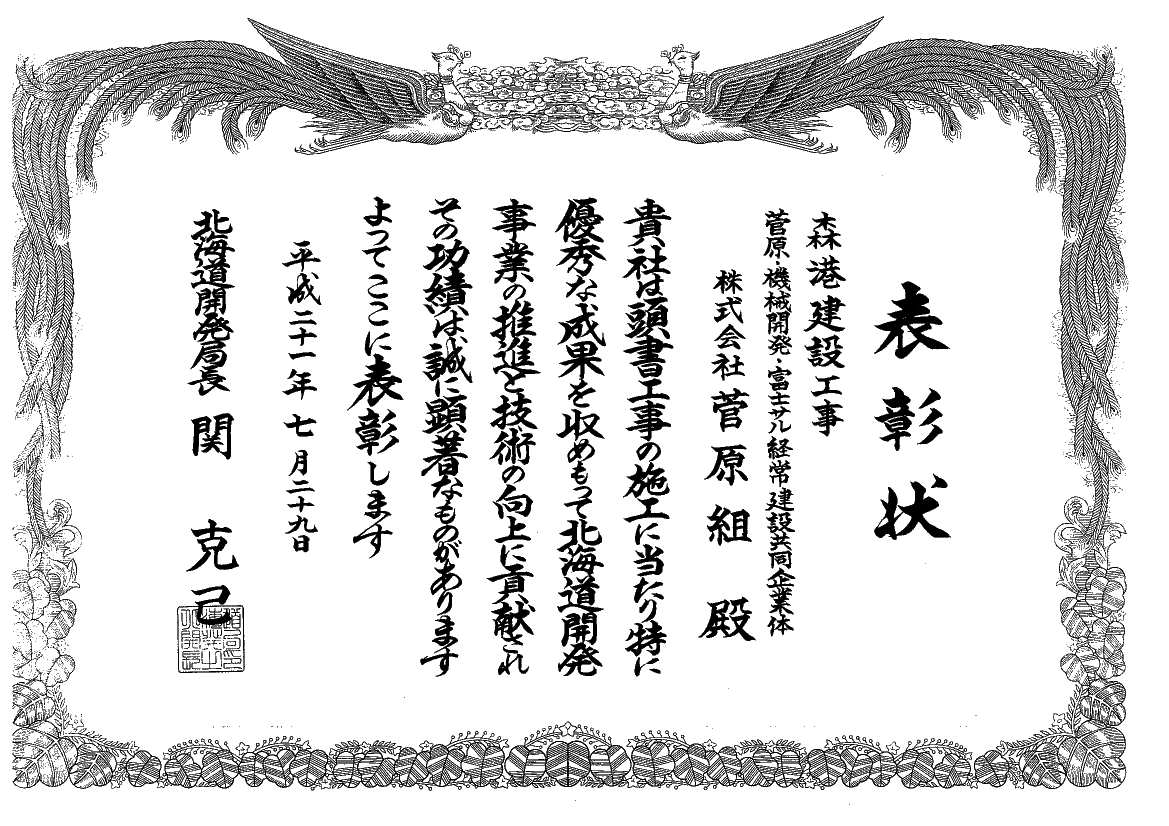 表彰状
森港建設工事
菅原・機械開発・富士サル経常建設共同企業体
株式会社菅原組 殿
貴社は頭書工事の施工に当たり特に
優秀な成果を収めもって北海道開発
事業の推進と技術の向上に貢献され
その功績は誠に顕著なものがあります
よってここに表彰します
平成二十一年七月二十九日
北海道開発局長 関 克己